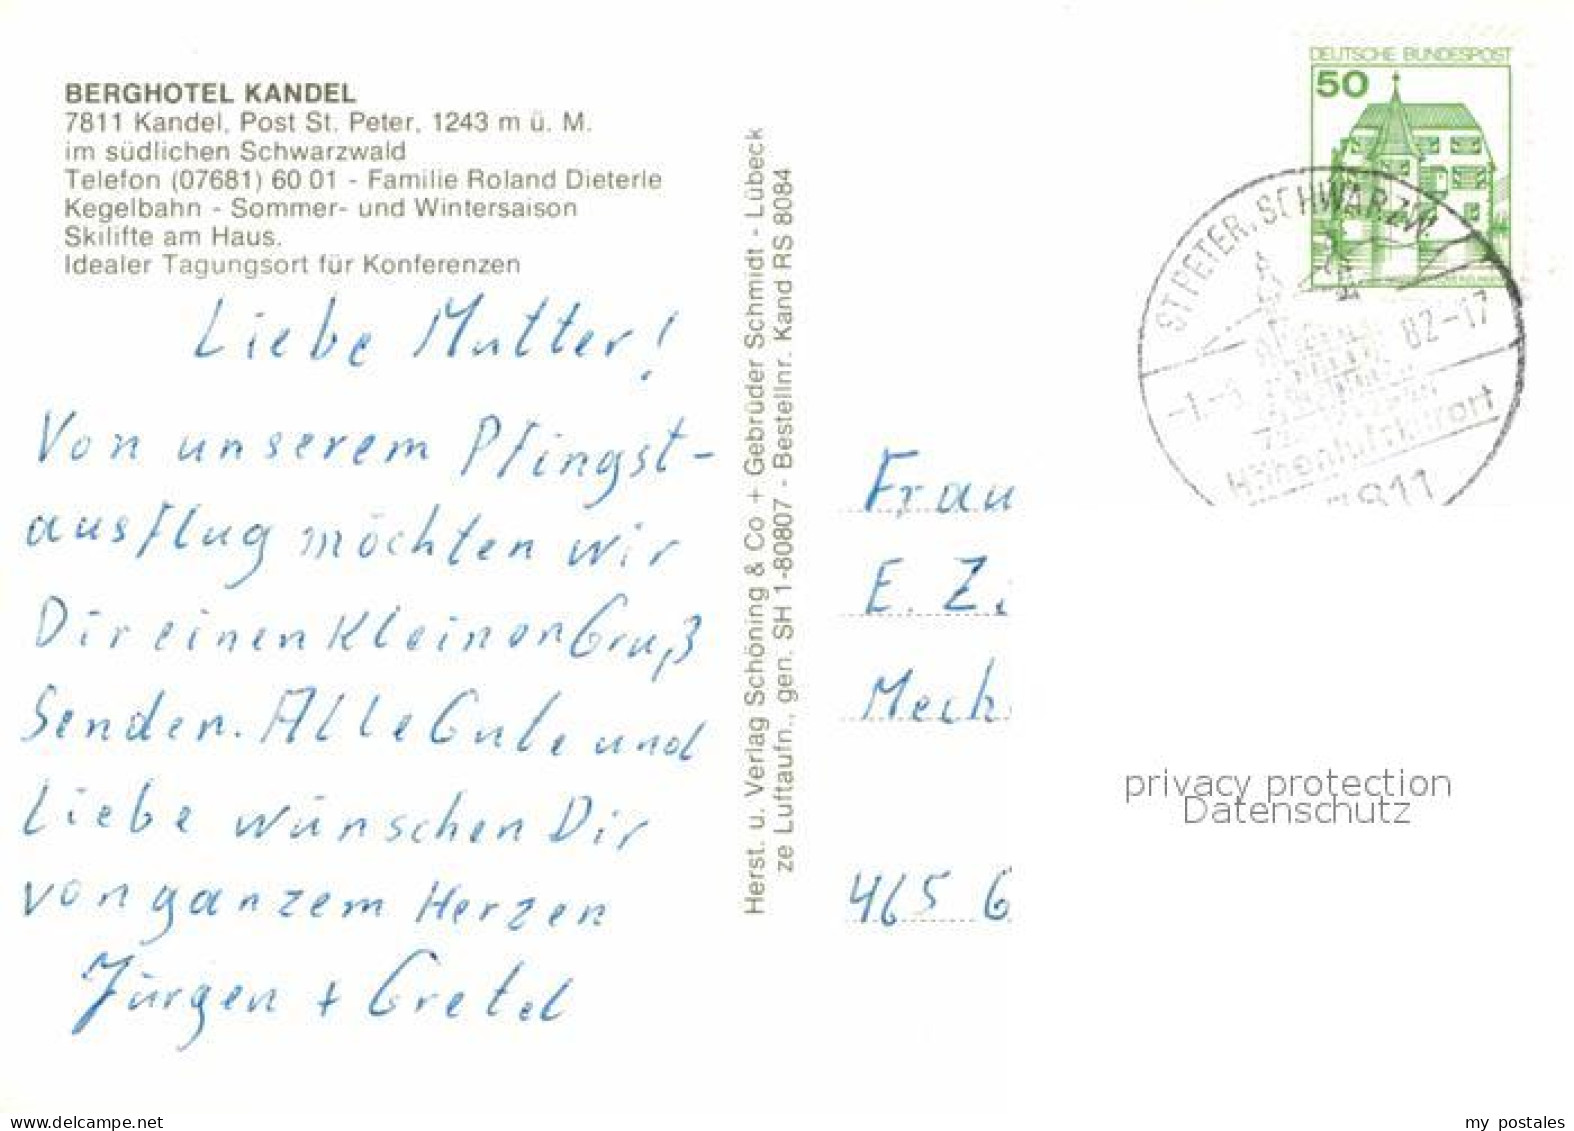 BERGHOTEL KANDEL
7811 Kandel, Post St. Peter, 1243 m ü. M.
im südlichen Schwarzwald
Telefon (07681) 60 01 - Familie Roland Dieterle
Kegelbahn - Sommer- und Wintersaison
Skilifte am Haus.
Idealer Tagungsort für Konferenzen
Liebe Mutter!
Von unserem Pfingst-
ausflug möchten wir
Dir einen kleinen Gruß
Senden. Alle Gute und
Liebe wünschen Dir
von ganzem Herzen
Jürgen + Gretel
Herst. u. Verlag Schöning & Co + Gebrüder Schmidt - Lübeck
ze Luftaufn., gen. SH 1-80807 - Bestellnr. Kand RS 8084
DEUTSCHE BUNDESPOST
50
ST PETER, SCHWARZW.
82-17
Höhenluftkurort
7811
Frau
E. Zi
Mech
465 G
privacy protection
Datenschutz
www.delcampe.net
my postales